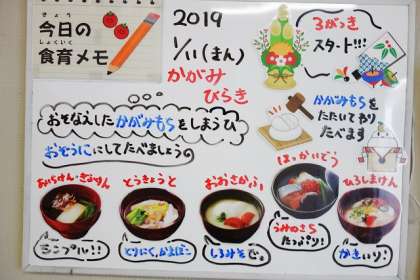 きょう
今日の
しょくいく
食育メモ
2019
1/11(きん)
かがみ
びらき
3がっき
スタート!!!
おそなえしたかがみもちをしまうひ
おぞうににしてたべましょう。
かがみもちを
たたいてわり
たべます
あいちけん・ぎふけん
とうきょうと
おおさかふ
ほっかいどう
ひろしまけん
シンプル!!
とりにく、かまぼこ
しろみそで。
うみのさち
たっぷり!
かきいり!